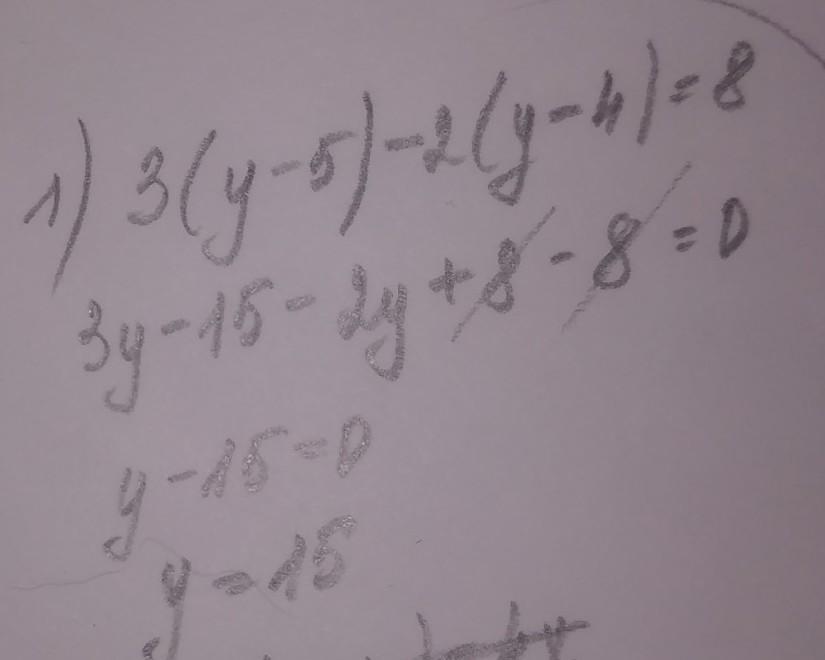 1) 3(y-5)-2(y-4)=8
3y-15-2y+8-8=0
y-15=0
y=15